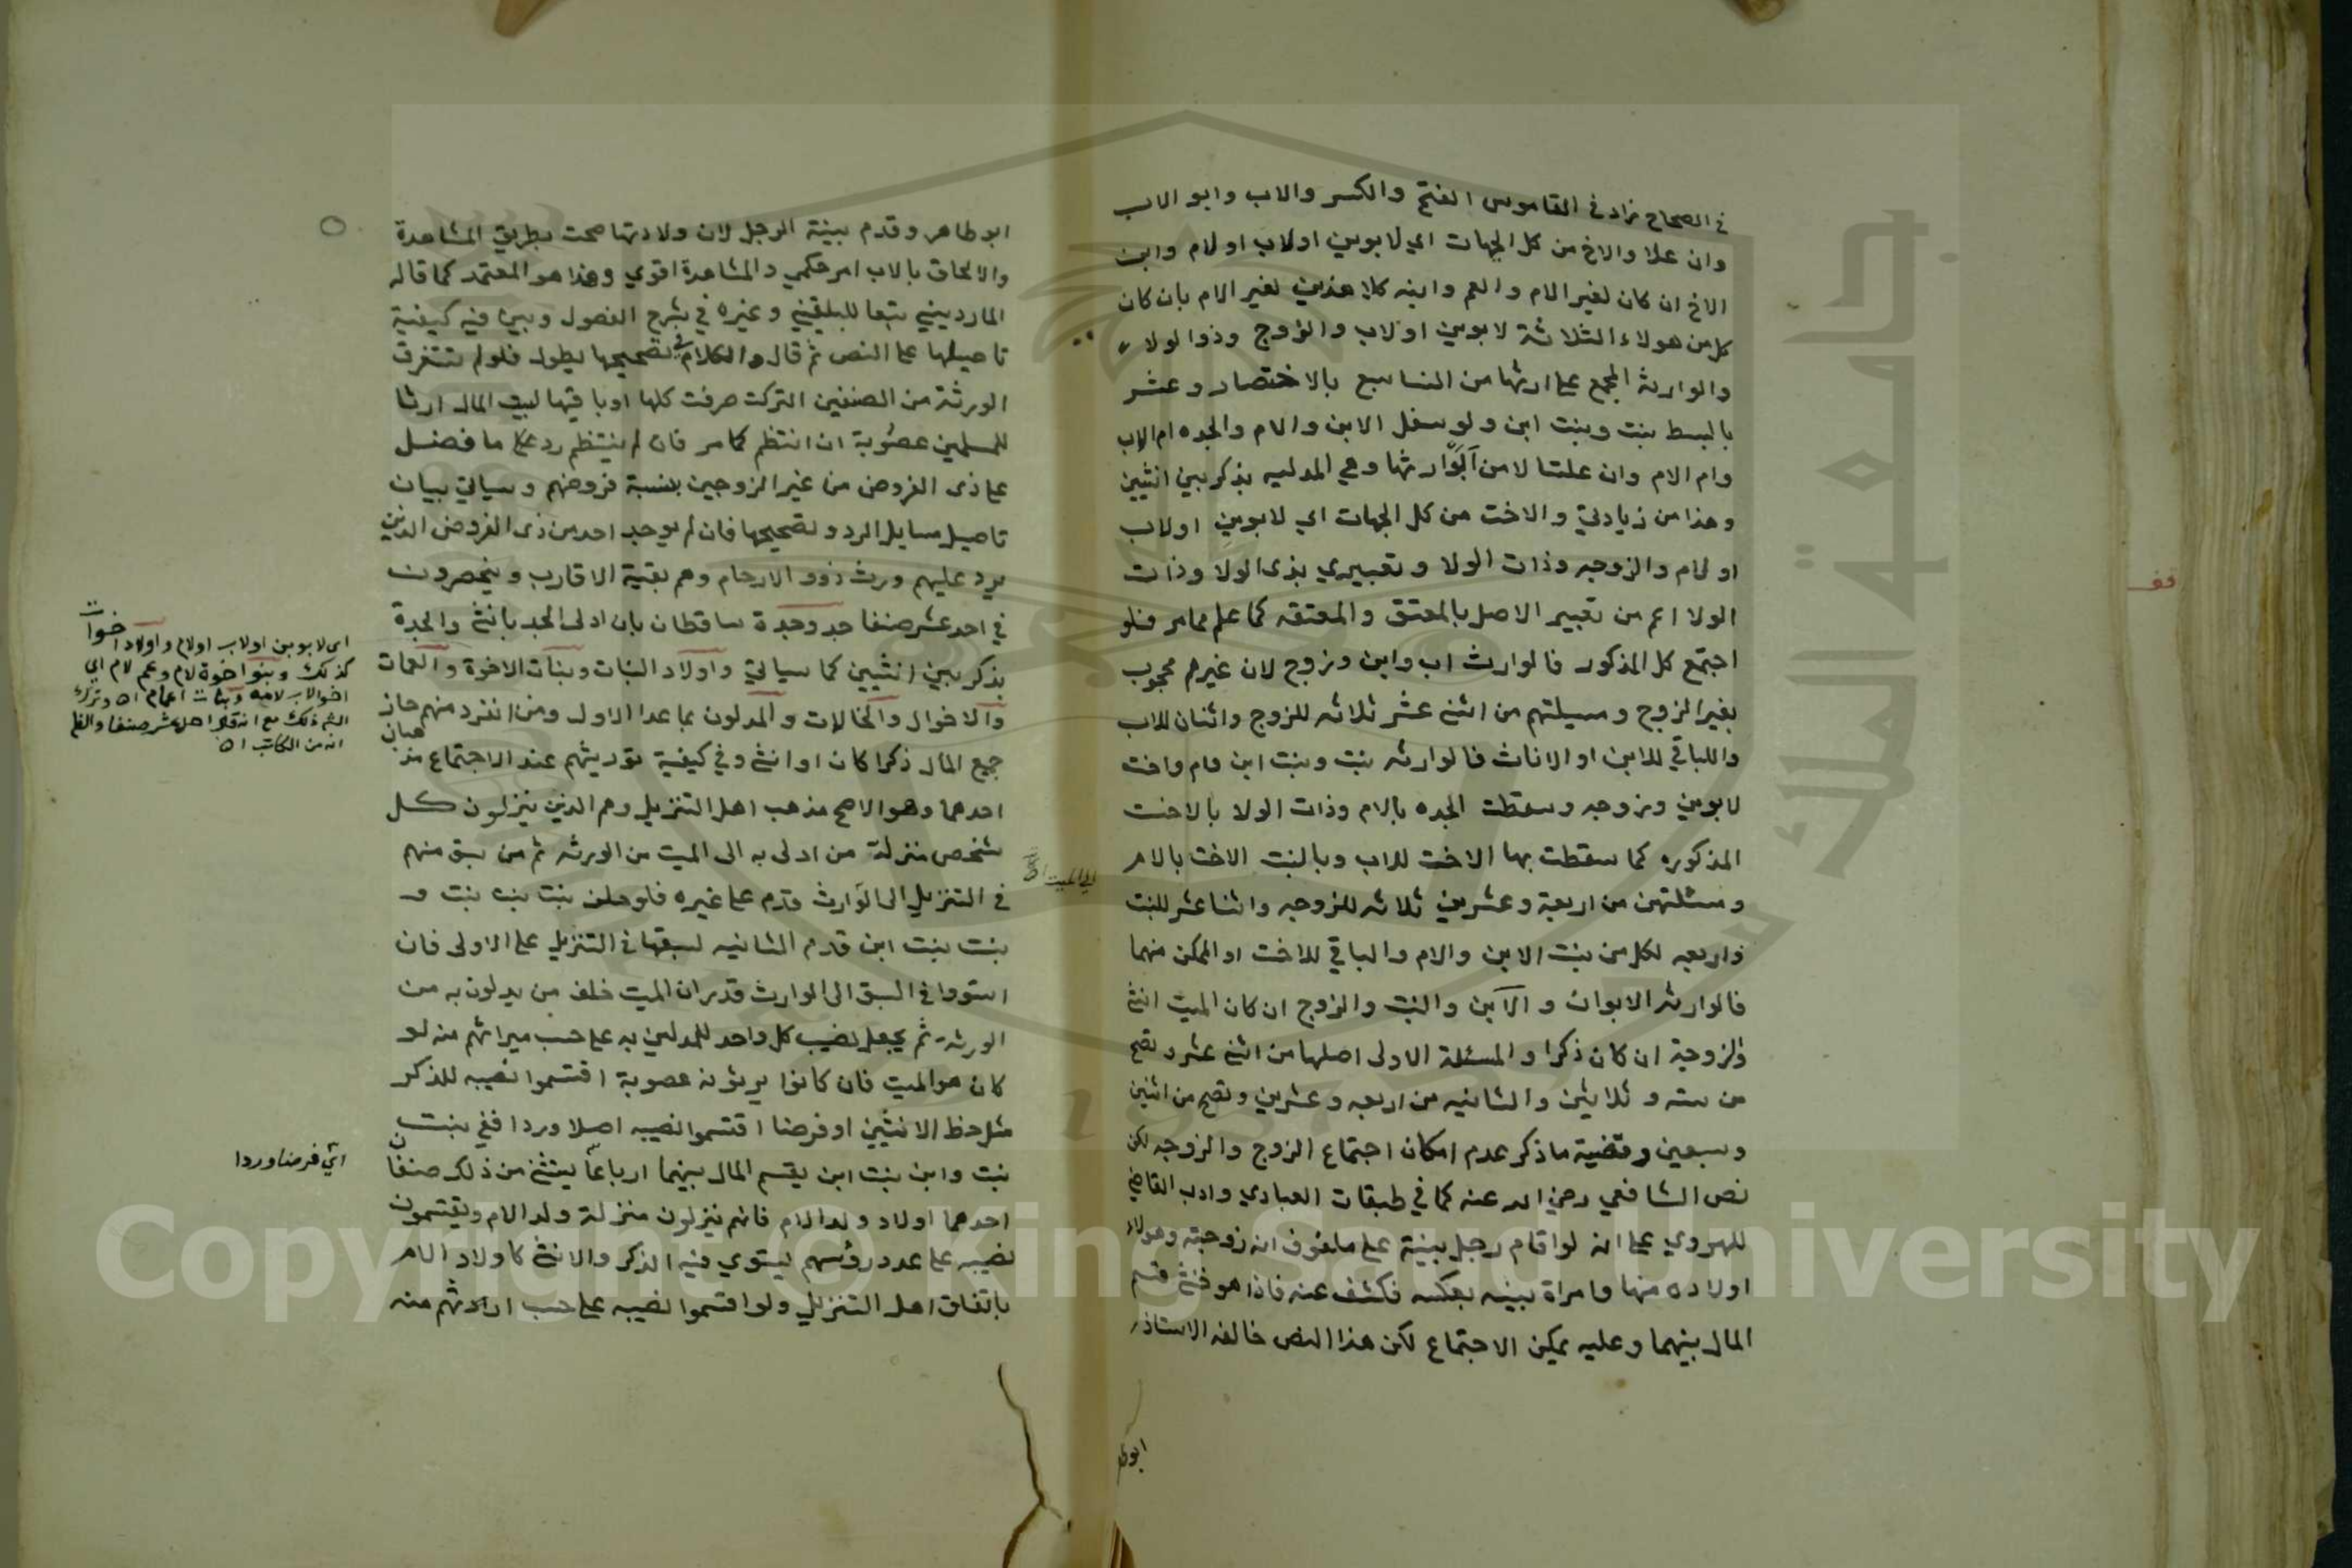 في الصحاح زاد في القاموس الفتح والكسر والاب وابو الاب
وان علا والاخ من كل الجهات اي لابوين اولاب اولام وابن
الاخ ان كان لغير الام والعم وابنه كلا هذين لغير الام بان كان
كل من هولاء الثلاثة لابوين اولاب والزوج وذوا لولاء
والوارث المجمع على ارثها من النسا سبع بالاختصار وعشر
بالبسط بنت وبنت ابن ولو سفل الابن والام والجده ام الاب
وام الام وان علتا لا من ارثها وهي المدليه بذكر بين انثيين
وهذا من زيادتي والاخت من كل الجهات اي لابوين اولاب
اولام والزوجه وذات الولا وتعبيري بذى الولا وذات
الولا اعم من تعبير الاصل بالمعتق والمعتقه كما علم مما مر فلو
اجتمع كل المذكور فالوارث اب وابن وزوج لان غيرهم محجوب
بغير الزوج ومسيلتهم من اثني عشر ثلاثه للزوج واثنان للاب
والباقي للابن او الاناث فالوارثه بنت وبنت ابن وام واخت
لابوين وزوجه وسقطت الجده بالام وذات الولا بالاخت
المذكوره كما سقطت بها الاخت للاب وبالبنت الاخت بالام
ومسئلتهن من اربعة وعشرين ثلاثه للزوجه واثنا عشر للبنت
واربعه لكل من بنت الابن والام والباقي للاخت او الممكن منهما
فالوارثه الابوان والابن والبنت والزوج ان كان الميت انثى
والزوجة ان كان ذكرا والمسئلة الاولى اصلها من اثني عشر وتصح
من سته وثلاثين والثانيه من اربعه وعشرين وتصح من اثنين
وسبعين وقضية ما ذكر عدم امكان اجتماع الزوج والزوجه لكن
نص الشافعي رضي الله عنه كما في طبقات العبادي وادب القاضي
للهروي على انه لو اقام رجل بينة على ملفوف انه زوجته وهولاء
اولاده منها وامراة بينه بعكسه فكشف عنه فاذا هو خنثى قسم
المال بينهما وعليه يمكن الاجتماع لكن هذا النص خالفه الاستاذ
ابوطا
ابو طاهر وقدم بينة الرجل لان ولادتها صحت بطريق المشاهدة
والالحاق بالاب امر حكمي والمشاهدة اقوي وهذا هو المعتمد كما قاله
المارديني تبعا للبلقيني وغيره في شرح الفصول وبين فيه كيفية
تاصيلها على النص ثم قال والكلام في تصحيحها يطول فلو لم تستغرق
الورثة من الصنفين التركت صرفت كلها اوباقيها لبيت المال ارثا
للمسلمين عصوبة ان انتظم كما مر فان لم ينتظم رد على ما فضل
على ذى الفروض من غير الزوجين بنسبة فروضهم وسياتي بيان
تاصيل مسايل الرد وتصحيحها فان لم يوجد احد من ذى الفروض الذين
يرد عليهم ورث ذوو الارحام وهم بقية الاقارب وينحصرون
في احد عشر صنفا جد وجدة ساقطان بان ادلى الجد بانثى والجدة
بذكر بين انثيين كما سياتي واولاد البنات وبنات الاخوة والعمات
والاخوال والخالات والمدلون بما عدا الاول ومن انفرد منهم حاز
جميع المال ذكرا كان او انثى وفي كيفية توريثهم عند الاجتماع مذ
هبان
احدهما وهو الاصح مذهب اهل التنزيل وهم الذين ينزلون كل
شخص منزلة من ادلى به الى الميت من الورثه ثم من سبق منهم
في التنزيل الى الوارث قدم على غيره فلو خلف بنت بنت بنت و
بنت بنت ابن قدم الثانيه لسبقها في التنزيل على الاولى فان
استووا في السبق الى الوارث قدر ان الميت خلف من يدلون به من
الورثه ثم يجعل نصيب كل واحد للمدلين به على حسب ميراثهم منه لو
كان هو الميت فان كانوا يرثونه عصوبة اقتسموا نصيبه للذكر
مثل حظ الانثيين او فرضا اقتسموا نصيبه اصلا وردا ففي بنت
بنت وابن بنت ابن يقسم المال بينهما ارباعا يستثنى من ذلك صنفان
احدهما اولاد ولد الام فانهم ينزلون منزلة ولد الام ويقتسمون
نصيبه على عدد رؤسهم ليستوي فيه الذكر والانثى كاولاد الام
باتفاق اهل التنزيل ولو اقتسموا نصيبه على حسب ارثهم منه
اى لابوين اولاب اولام واولاد اخوات
كذلك وبنو اخوة لام وعم لام اي
اخو الاب لامه وبنات اعمام اه وترك
ذلك مع انه قال احد عشر صنفا
انه من الكاتب اه
الى الميت
اي فرضا وردا
قف
Copyright © King Saud University
جامعة الملك سعود